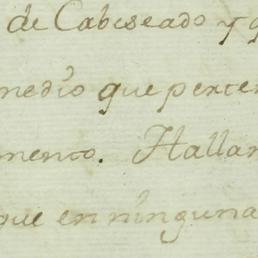 de Cabeseado y q
medio que perten
mento. Hallan
que en ninguna